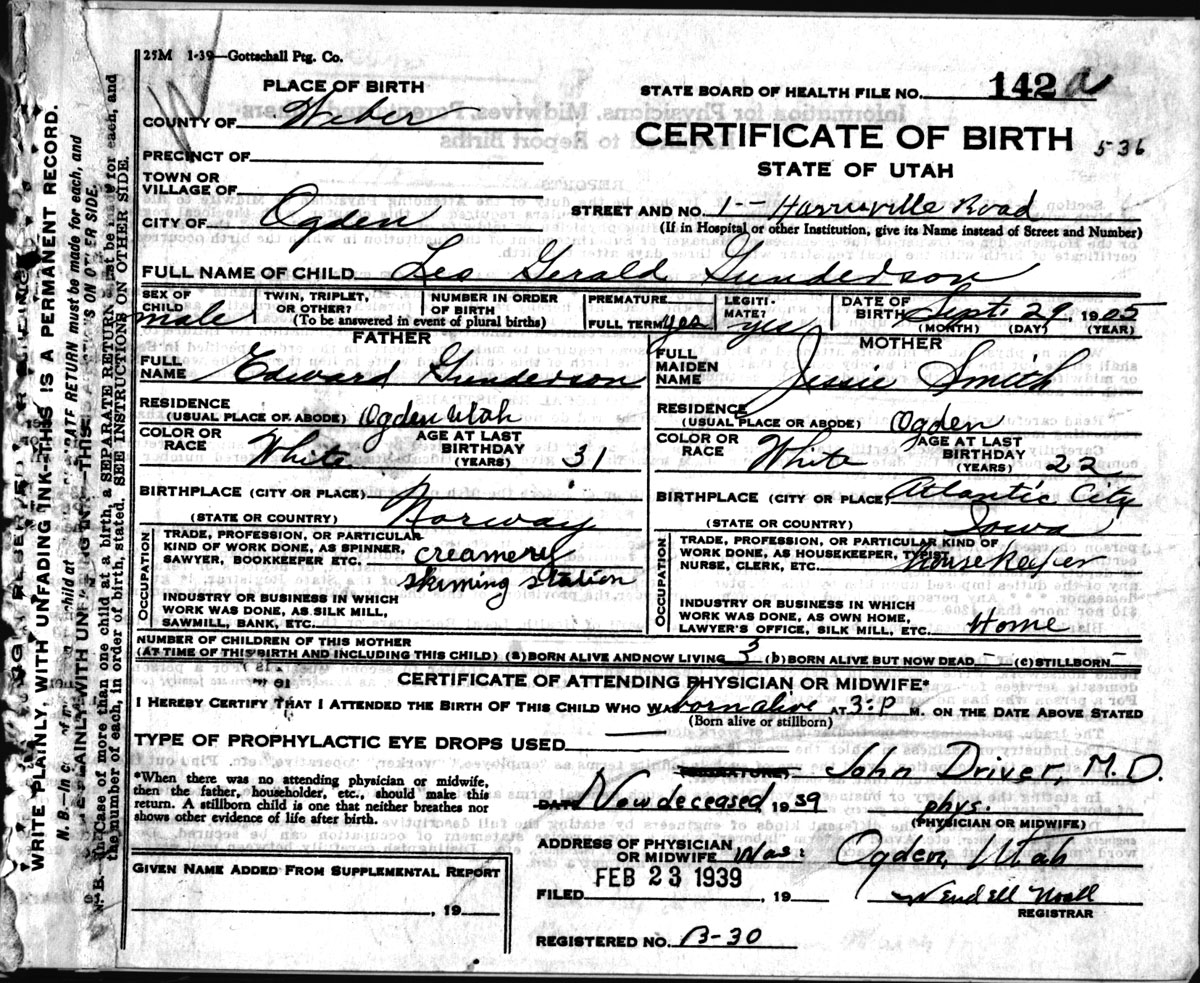 25M 1-39—Gottschall Ptg. Co.
PLACE OF BIRTH
STATE BOARD OF HEALTH FILE NO. 142 a
COUNTY OF Weber
CERTIFICATE OF BIRTH 536
PRECINCT OF
STATE OF UTAH
TOWN OR
VILLAGE OF
CITY OF Ogden
STREET AND NO. 1-- Harrisville Road
(If in Hospital or other Institution, give its Name instead of Street and Number)
FULL NAME OF CHILD Leo Gerald Gunderson
SEX OF CHILD male
TWIN, TRIPLET, OR OTHER?
NUMBER IN ORDER OF BIRTH
(To be answered in event of plural births)
PREMATURE
FULL TERM yes
LEGITI-MATE? yes
DATE OF BIRTH Sept. 29, 1905
(MONTH) (DAY) (YEAR)
FATHER
FULL NAME Edward Gunderson
RESIDENCE
(USUAL PLACE OF ABODE) Ogden Utah
COLOR OR RACE White
AGE AT LAST BIRTHDAY (YEARS) 31
BIRTHPLACE (CITY OR PLACE)
(STATE OR COUNTRY) Norway
OCCUPATION
TRADE, PROFESSION, OR PARTICULAR
KIND OF WORK DONE, AS SPINNER,
SAWYER, BOOKKEEPER ETC. creamery
skiming station
INDUSTRY OR BUSINESS IN WHICH
WORK WAS DONE, AS SILK MILL,
SAWMILL, BANK, ETC.
MOTHER
FULL MAIDEN NAME Jessie Smith
RESIDENCE
(USUAL PLACE OR ABODE) Ogden
COLOR OR RACE White
AGE AT LAST BIRTHDAY (YEARS) 22
BIRTHPLACE (CITY OR PLACE) Atlantic City
(STATE OR COUNTRY) Iowa
OCCUPATION
TRADE, PROFESSION, OR PARTICULAR KIND OF
WORK DONE, AS HOUSEKEEPER, TYPIST,
NURSE, CLERK, ETC. Housekeeper
INDUSTRY OR BUSINESS IN WHICH
WORK WAS DONE, AS OWN HOME,
LAWYER'S OFFICE, SILK MILL, ETC. Home
NUMBER OF CHILDREN OF THIS MOTHER
(AT TIME OF THIS BIRTH AND INCLUDING THIS CHILD) (a) BORN ALIVE AND NOW LIVING 3 (b) BORN ALIVE BUT NOW DEAD - (c) STILLBORN -
CERTIFICATE OF ATTENDING PHYSICIAN OR MIDWIFE*
I HEREBY CERTIFY THAT I ATTENDED THE BIRTH OF THIS CHILD WHO WAS born alive AT 3:P M. ON THE DATE ABOVE STATED
(Born alive or stillborn)
TYPE OF PROPHYLACTIC EYE DROPS USED
*When there was no attending physician or midwife,
then the father, householder, etc., should make this
return. A stillborn child is one that neither breathes nor
shows other evidence of life after birth.
SIGNATURE: John Driver, M.D.
DATE Now deceased 1939 phys.
(PHYSICIAN OR MIDWIFE)
ADDRESS OF PHYSICIAN
OR MIDWIFE Was: Ogden, Utah
GIVEN NAME ADDED FROM SUPPLEMENTAL REPORT
, 19
FILED FEB 23 1939, 19
Wendell Noall
REGISTRAR
REGISTERED NO. B-30
WRITE PLAINLY, WITH UNFADING INK—THIS IS A PERMANENT RECORD.
N. B.—In Case of more than one child at a birth, a SEPARATE RETURN must be made for each, and
the number of each, in order of birth, stated. SEE INSTRUCTIONS ON OTHER SIDE.